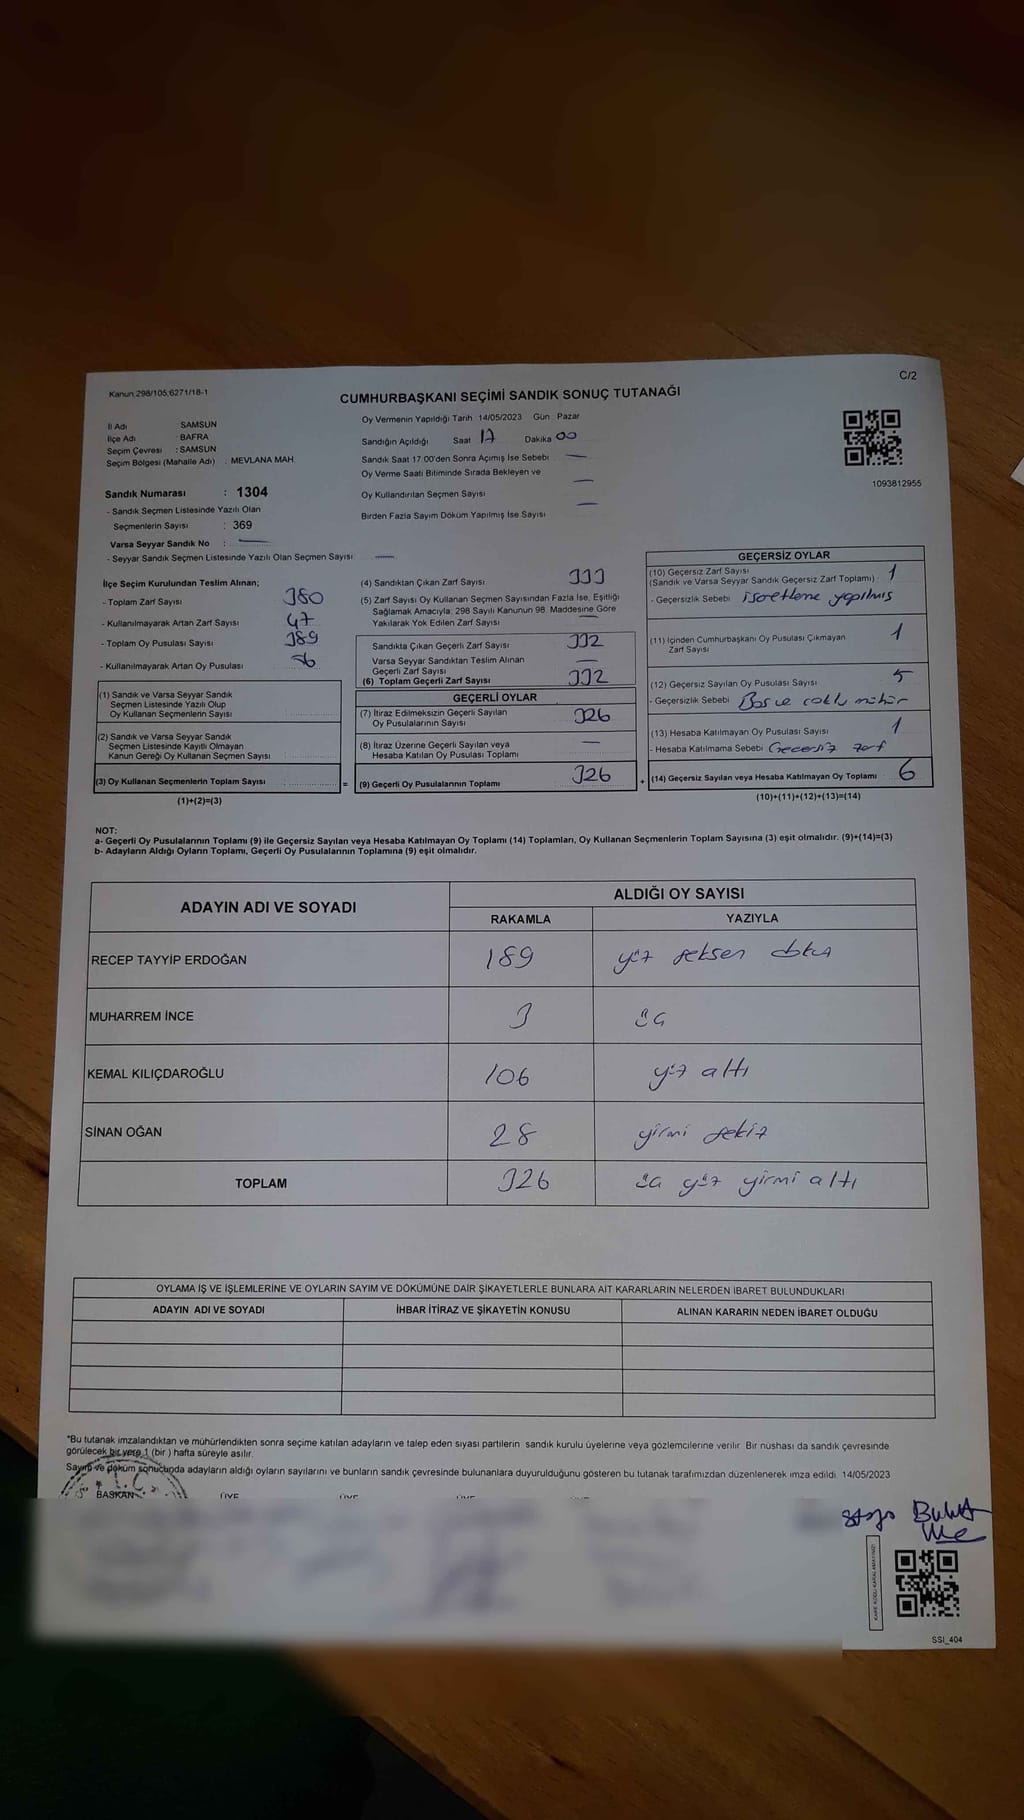 C/2
Kanun:298/105;6271/18-1
CUMHURBAŞKANI SEÇİMİ SANDIK SONUÇ TUTANAĞI
İl Adı SAMSUN
İlçe Adı : BAFRA
Seçim Çevresi : SAMSUN
Seçim Bölgesi (Mahalle Adı) : MEVLANA MAH.
Sandık Numarası : 1304
- Sandık Seçmen Listesinde Yazılı Olan
Seçmenlerin Sayısı : 369
Varsa Seyyar Sandık No : —
- Seyyar Sandık Seçmen Listesinde Yazılı Olan Seçmen Sayısı —
Oy Vermenin Yapıldığı Tarih 14/05/2023 Gün : Pazar
Sandığın Açıldığı Saat 17 Dakika 00
Sandık Saat 17:00'den Sonra Açımış İse Sebebi —
Oy Verme Saati Bitiminde Sırada Bekleyen ve
Oy Kullandırılan Seçmen Sayısı —
Birden Fazla Sayım Döküm Yapılmış İse Sayısı —
1093812955
İlçe Seçim Kurulundan Teslim Alınan;
- Toplam Zarf Sayısı 380
- Kullanılmayarak Artan Zarf Sayısı 47
- Toplam Oy Pusulası Sayısı 389
- Kullanılmayarak Artan Oy Pusulası 56
(1) Sandık ve Varsa Seyyar Sandık
Seçmen Listesinde Yazılı Olup
Oy Kullanan Seçmenlerin Sayısı
(2) Sandık ve Varsa Seyyar Sandık
Seçmen Listesinde Kayıtlı Olmayan
Kanun Gereği Oy Kullanan Seçmen Sayısı
(3) Oy Kullanan Seçmenlerin Toplam Sayısı
(1)+(2)=(3)
(4) Sandıktan Çıkan Zarf Sayısı 333
(5) Zarf Sayısı Oy Kullanan Seçmen Sayısından Fazla İse, Eşitliği
Sağlamak Amacıyla, 298 Sayılı Kanunun 98. Maddesine Göre
Yakılarak Yok Edilen Zarf Sayısı —
Sandıkta Çıkan Geçerli Zarf Sayısı 332
Varsa Seyyar Sandıktan Teslim Alınan
Geçerli Zarf Sayısı —
(6) Toplam Geçerli Zarf Sayısı 332
GEÇERLİ OYLAR
(7) İtiraz Edilmeksizin Geçerli Sayılan
Oy Pusulalarının Sayısı 326
(8) İtiraz Üzerine Geçerli Sayılan veya
Hesaba Katılan Oy Pusulası Toplamı —
= (9) Geçerli Oy Pusulalarının Toplamı 326 +
GEÇERSİZ OYLAR
(10) Geçersiz Zarf Sayısı
(Sandık ve Varsa Seyyar Sandık Geçersiz Zarf Toplamı) : 1
- Geçersizlik Sebebi işaretleme yapılmış
(11) İçinden Cumhurbaşkanı Oy Pusulası Çıkmayan
Zarf Sayısı 1
(12) Geçersiz Sayılan Oy Pusulası Sayısı 5
- Geçersizlik Sebebi Boş ve çoklu mühür
(13) Hesaba Katılmayan Oy Pusulası Sayısı 1
- Hesaba Katılmama Sebebi Geçersiz zarf
(14) Geçersiz Sayılan veya Hesaba Katılmayan Oy Toplamı 6
(10)+(11)+(12)+(13)=(14)
NOT:
a- Geçerli Oy Pusulalarının Toplamı (9) ile Geçersiz Sayılan veya Hesaba Katılmayan Oy Toplamı (14) Toplamları, Oy Kullanan Seçmenlerin Toplam Sayısına (3) eşit olmalıdır. (9)+(14)=(3)
b- Adayların Aldığı Oyların Toplamı, Geçerli Oy Pusulalarının Toplamına (9) eşit olmalıdır.
ADAYIN ADI VE SOYADI ALDIĞI OY SAYISI
RAKAMLA YAZIYLA
RECEP TAYYİP ERDOĞAN 189 yüz seksen dokuz
MUHARREM İNCE 3 üç
KEMAL KILIÇDAROĞLU 106 yüz altı
SİNAN OĞAN 28 yirmi sekiz
TOPLAM 326 üç yüz yirmi altı
OYLAMA İŞ VE İŞLEMLERİNE VE OYLARIN SAYIM VE DÖKÜMÜNE DAİR ŞİKAYETLERLE BUNLARA AİT KARARLARIN NELERDEN İBARET BULUNDUKLARI
ADAYIN ADI VE SOYADI İHBAR İTİRAZ VE ŞİKAYETİN KONUSU ALINAN KARARIN NEDEN İBARET OLDUĞU
*Bu tutanak imzalandıktan ve mühürlendikten sonra seçime katılan adayların ve talep eden siyasi partilerin sandık kurulu üyelerine veya gözlemcilerine verilir. Bir nüshası da sandık çevresinde
görülecek bir yere 1 (bir ) hafta süreyle asılır.
Sayım ve döküm sonucunda adayların aldığı oyların sayılarını ve bunların sandık çevresinde bulunanlara duyurulduğunu gösteren bu tutanak tarafımızdan düzenlenerek imza edildi. 14/05/2023
T.C.
BAŞKAN ÜYE ÜYE ÜYE ÜYE
Bulut
SSI_404